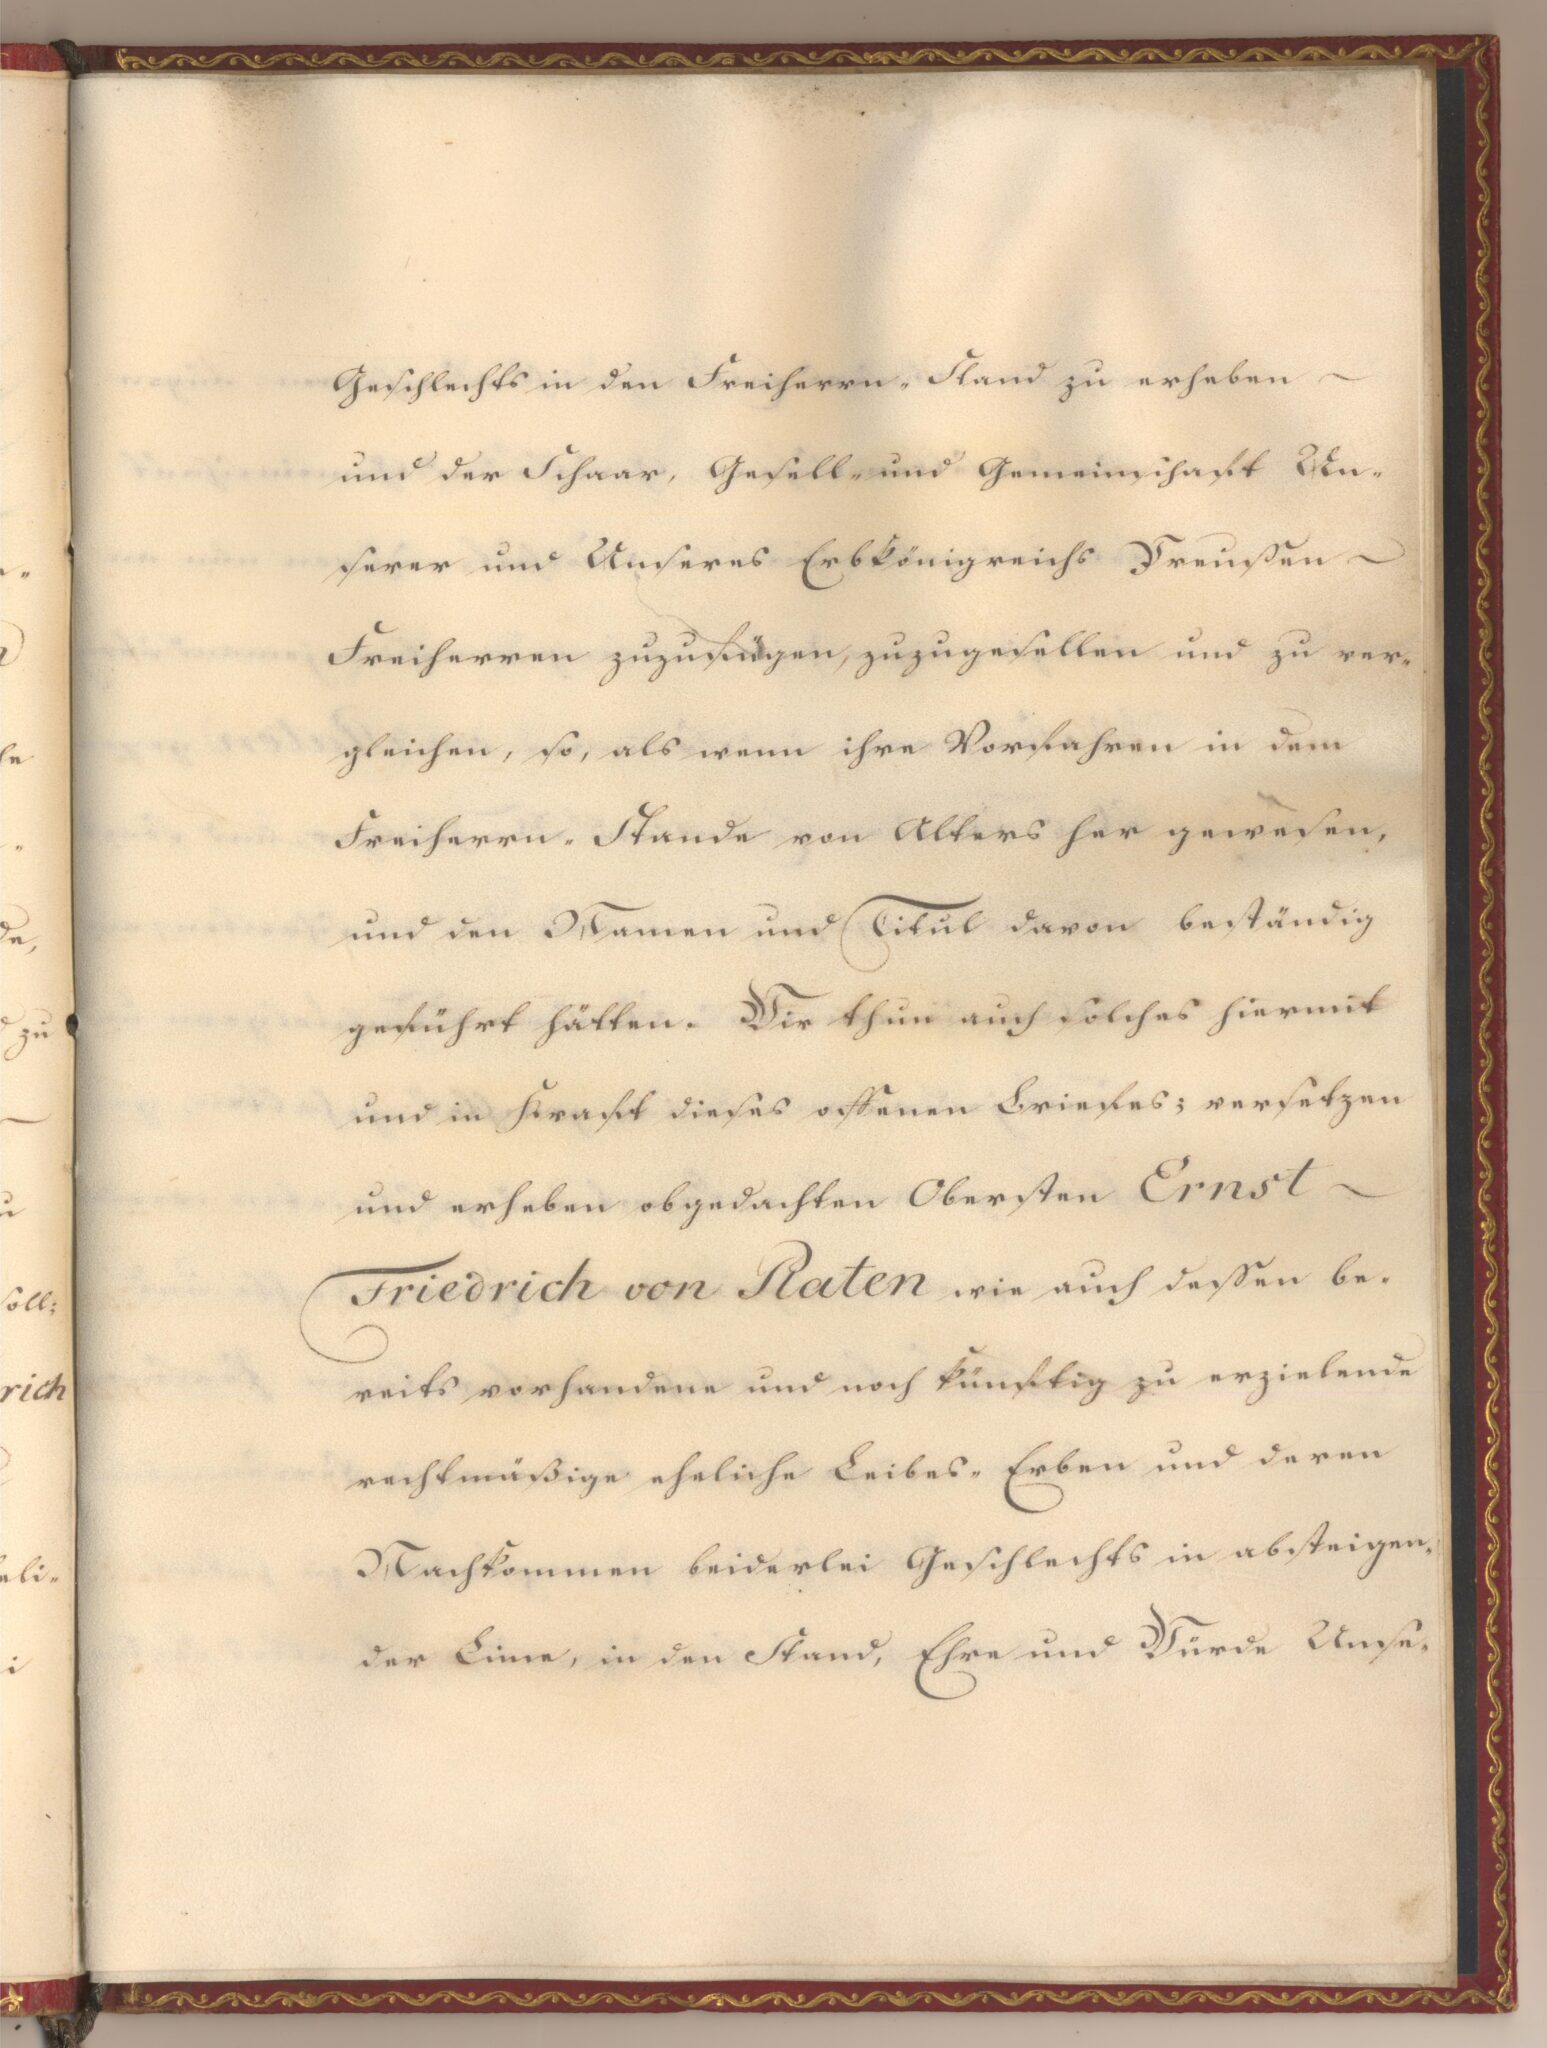 Geschlechts in den Freiherrn-Stand zu erheben ~
und der Schaar, Gesell- und Gemeinschaft Un-
serer und Unseres Erbkönigreichs Preußen ~
Freiherren zuzufügen, zuzugesellen und zu ver-
gleichen, so, als wenn ihre Vorfahren in dem
Freiherrn-Stande von Alters her gewesen,
und den Namen und Titul davon beständig
geführt hätten. Wir thun auch solches hiermit
und in Kraft dieses offenen Briefes; versetzen
und erheben obgedachten Obersten Ernst ~
Friedrich von Raten wie auch dessen be-
reits vorhandene und noch künftig zu erzielende
rechtmäßige eheliche Leibes-Erben und deren
Nachkommen beiderlei Geschlechts in absteigen-
der Linie, in den Stand, Ehre und Würde Unse-